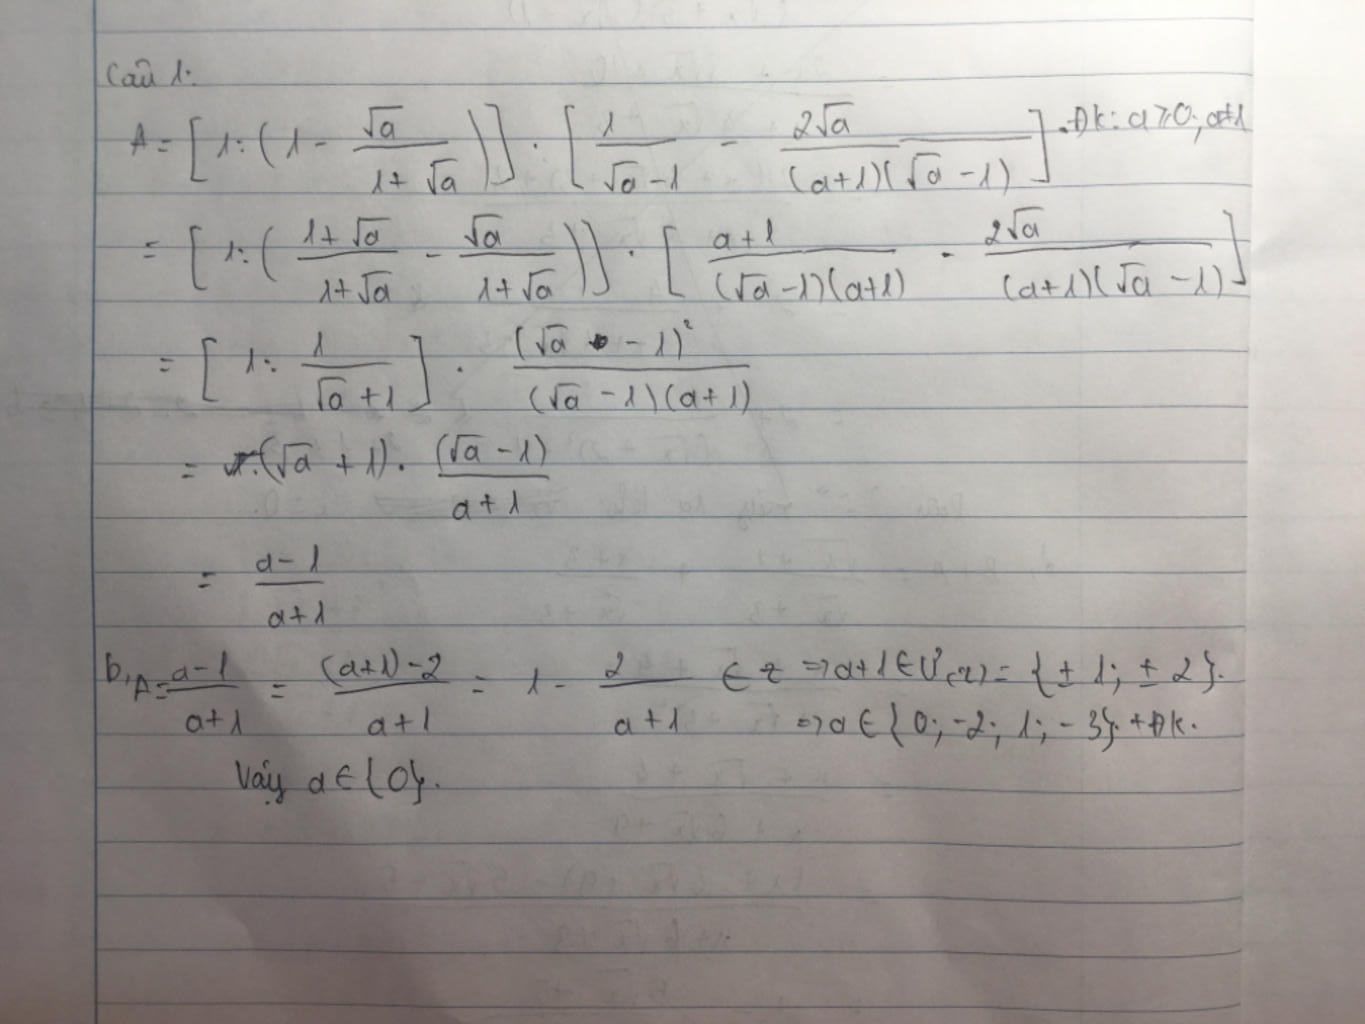 Câu 1:
A = [1:(1 - √a/(1+√a))] · [1/(√a-1) - 2√a/((a+1)(√a-1))]. Đk: a ≥ 0; a≠1
= [1:((1+√a)/(1+√a) - √a/(1+√a))] · [(a+1)/((√a-1)(a+1)) - 2√a/((a+1)(√a-1))]
= [1: 1/(√a+1)] · (√a - 1)²/((√a-1)(a+1))
= (√a+1) · (√a-1)/(a+1)
= (a-1)/(a+1)
b, A = (a-1)/(a+1) = ((a+1)-2)/(a+1) = 1 - 2/(a+1) ∈ Z => a+1 ∈ Ư(2) = {±1; ±2}.
=> a ∈ {0; -2; 1; -3} + Đk.
Vậy a ∈ {0}.